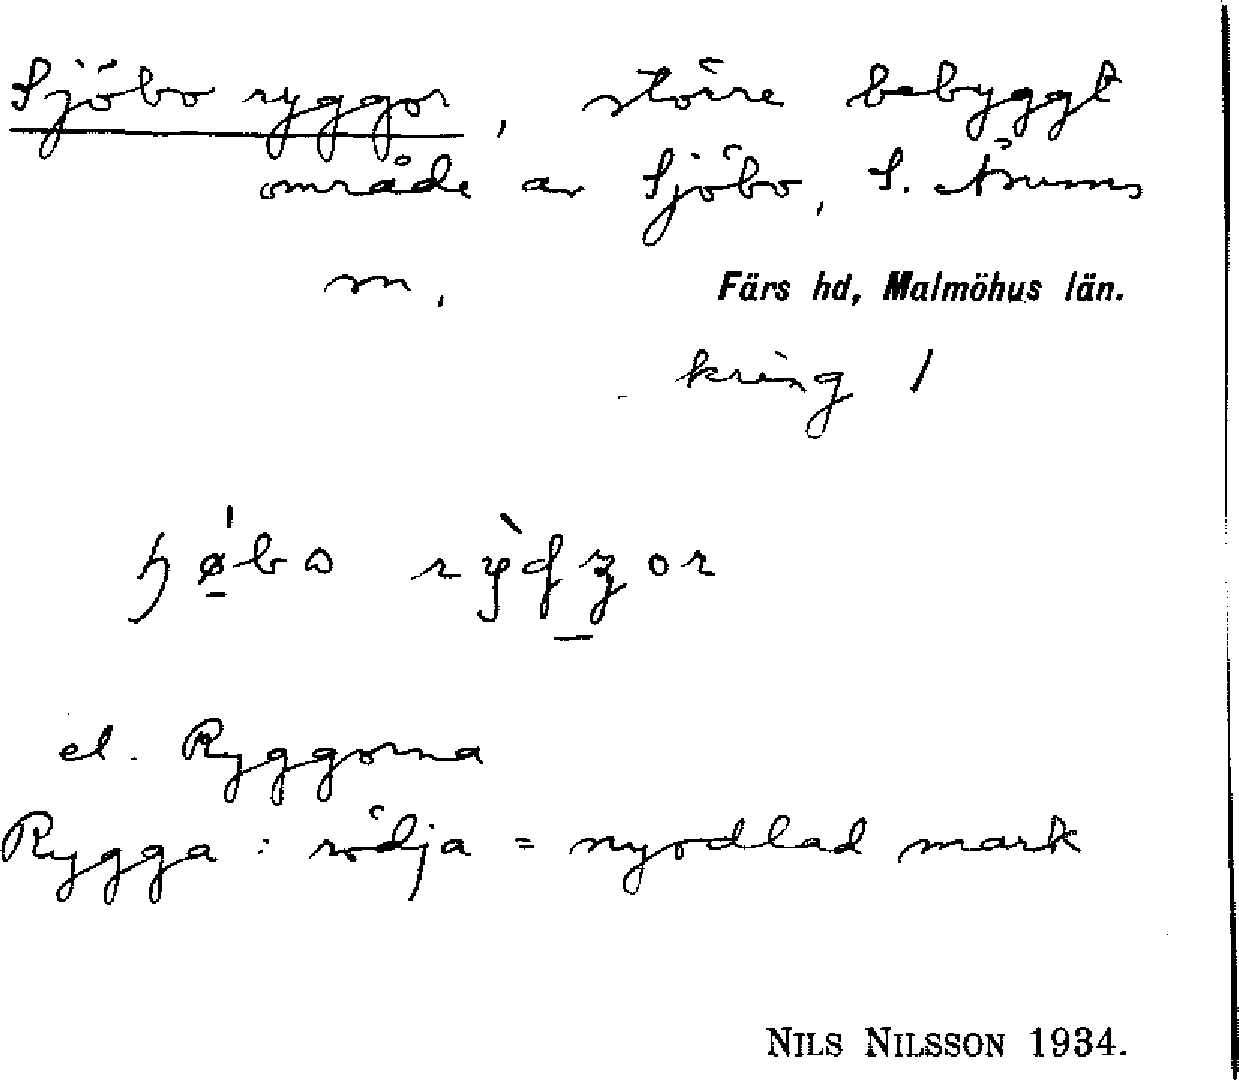 Sjöbo ryggor, större bebyggt
område av Sjöbo, S. Åsums
m.
Färs hd, Malmöhus län.
kring 1
ryggor
el. Ryggorna
Rygga : rödja = nyodlad mark
NILS NILSSON 1934.